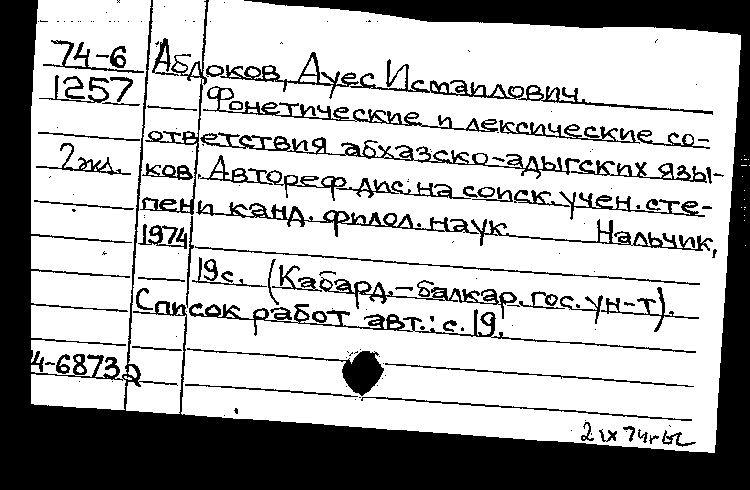 74-6 Абдоков, Ауес Исмаилович.
1257 Фонетические и лексические со-
ответствия абхазско-адыгских язы-
2 экз. ков. Автореф. дис. на соиск. учен. сте-
пени канд. филол. наук. Нальчик,
1974
19с. (Кабард.-балкар. гос. ун-т).
Список работ авт.: с. 19.
4-68732
2 IX 74г